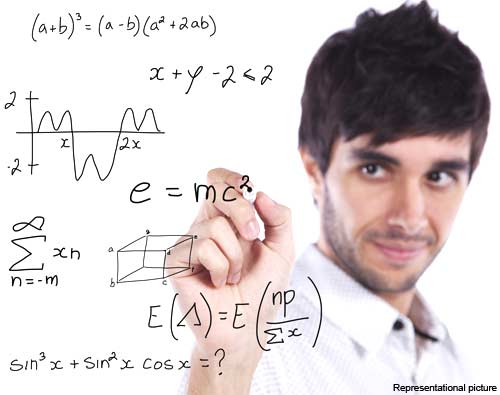 (a+b)³ = (a-b)(a² + 2ab)
x + y - 2 ≤ 2
2
x
2x
-2
e = mc²
∞
∑ xn
n=-m
a
b
c
d
E(Δ) = E(np / ∑x)
sin³x + sin²x cosx = ?
Representational picture